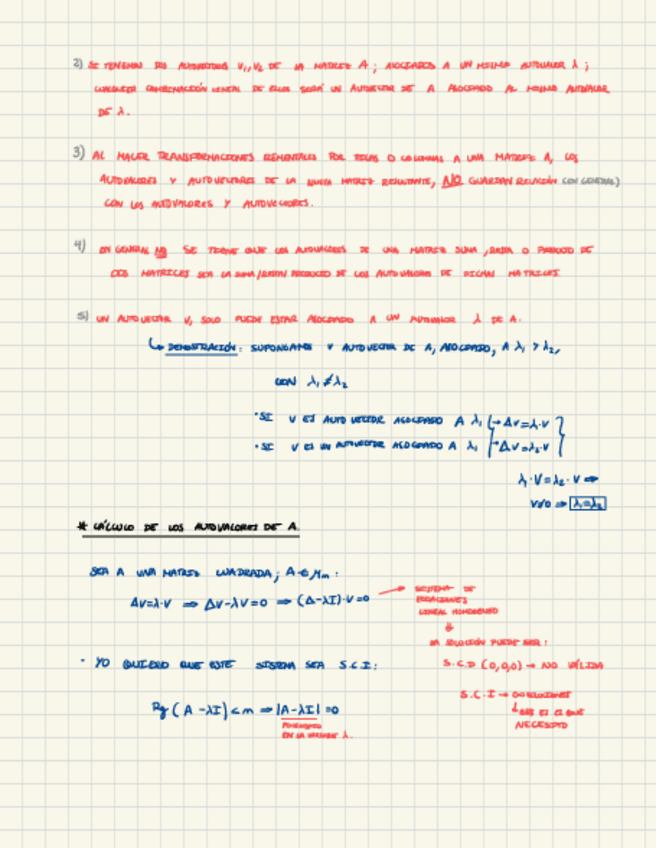 2) SI TENEMOS DOS AUTOVECTORES V₁, V₂ DE LA MATRIZ A; ASOCIADOS A UN MISMO AUTOVALOR λ;
CUALQUIER COMBINACIÓN LINEAL DE ELLOS SERÁ UN AUTOVECTOR DE A ASOCIADO AL MISMO AUTOVALOR
DE λ.
3) AL HACER TRANSFORMACIONES ELEMENTALES POR FILAS O COLUMNAS A UNA MATRIZ A, LOS
AUTOVALORES Y AUTOVECTORES DE LA NUEVA MATRIZ RESULTANTE, NO GUARDAN RELACIÓN (EN GENERAL)
CON LOS AUTOVALORES Y AUTOVECTORES.
4) EN GENERAL NO SE TIENE QUE LOS AUTOVALORES DE UNA MATRIZ SUMA, RESTA O PRODUCTO DE
DOS MATRICES SEA LA SUMA/RESTA/PRODUCTO DE LOS AUTOVALORES DE DICHAS MATRICES
5) UN AUTOVECTOR V, SOLO PUEDE ESTAR ASOCIADO A UN AUTOVALOR λ DE A.
↳ DEMOSTRACIÓN: SUPONGAMOS V AUTOVECTOR DE A, ASOCIADO, A λ₁ Y λ₂,
CON λ₁ ≠ λ₂
· SI V ES AUTOVECTOR ASOCIADO A λ₁ → AV=λ·V
· SI V ES UN AUTOVECTOR ASOCIADO A λ₁ → AV=λ₂·V
λ₁·V=λ₂·V ⇒
V≠0 ⇒ λ₁=λ₂
* CÁLCULO DE LOS AUTOVALORES DE A.
SEA A UNA MATRIZ CUADRADA; A∈Mₘ:
AV=λ·V ⇒ AV-λV=0 ⇒ (A-λI)·V=0
→ SISTEMA DE
ECUACIONES
LINEAL HOMOGENEO
⇓
LA SOLUCIÓN PUEDE SER:
S.C.D (0,0,0) → NO VÁLIDA
S.C.I → ∞ SOLUCIONES
↳ ESE ES EL QUE
NECESITO
· YO QUIERO QUE ESTE SISTEMA SEA S.C.I:
Rg(A-λI)<m ⇒ |A-λI|=0
POLINOMIO
EN LA VARIABLE λ.